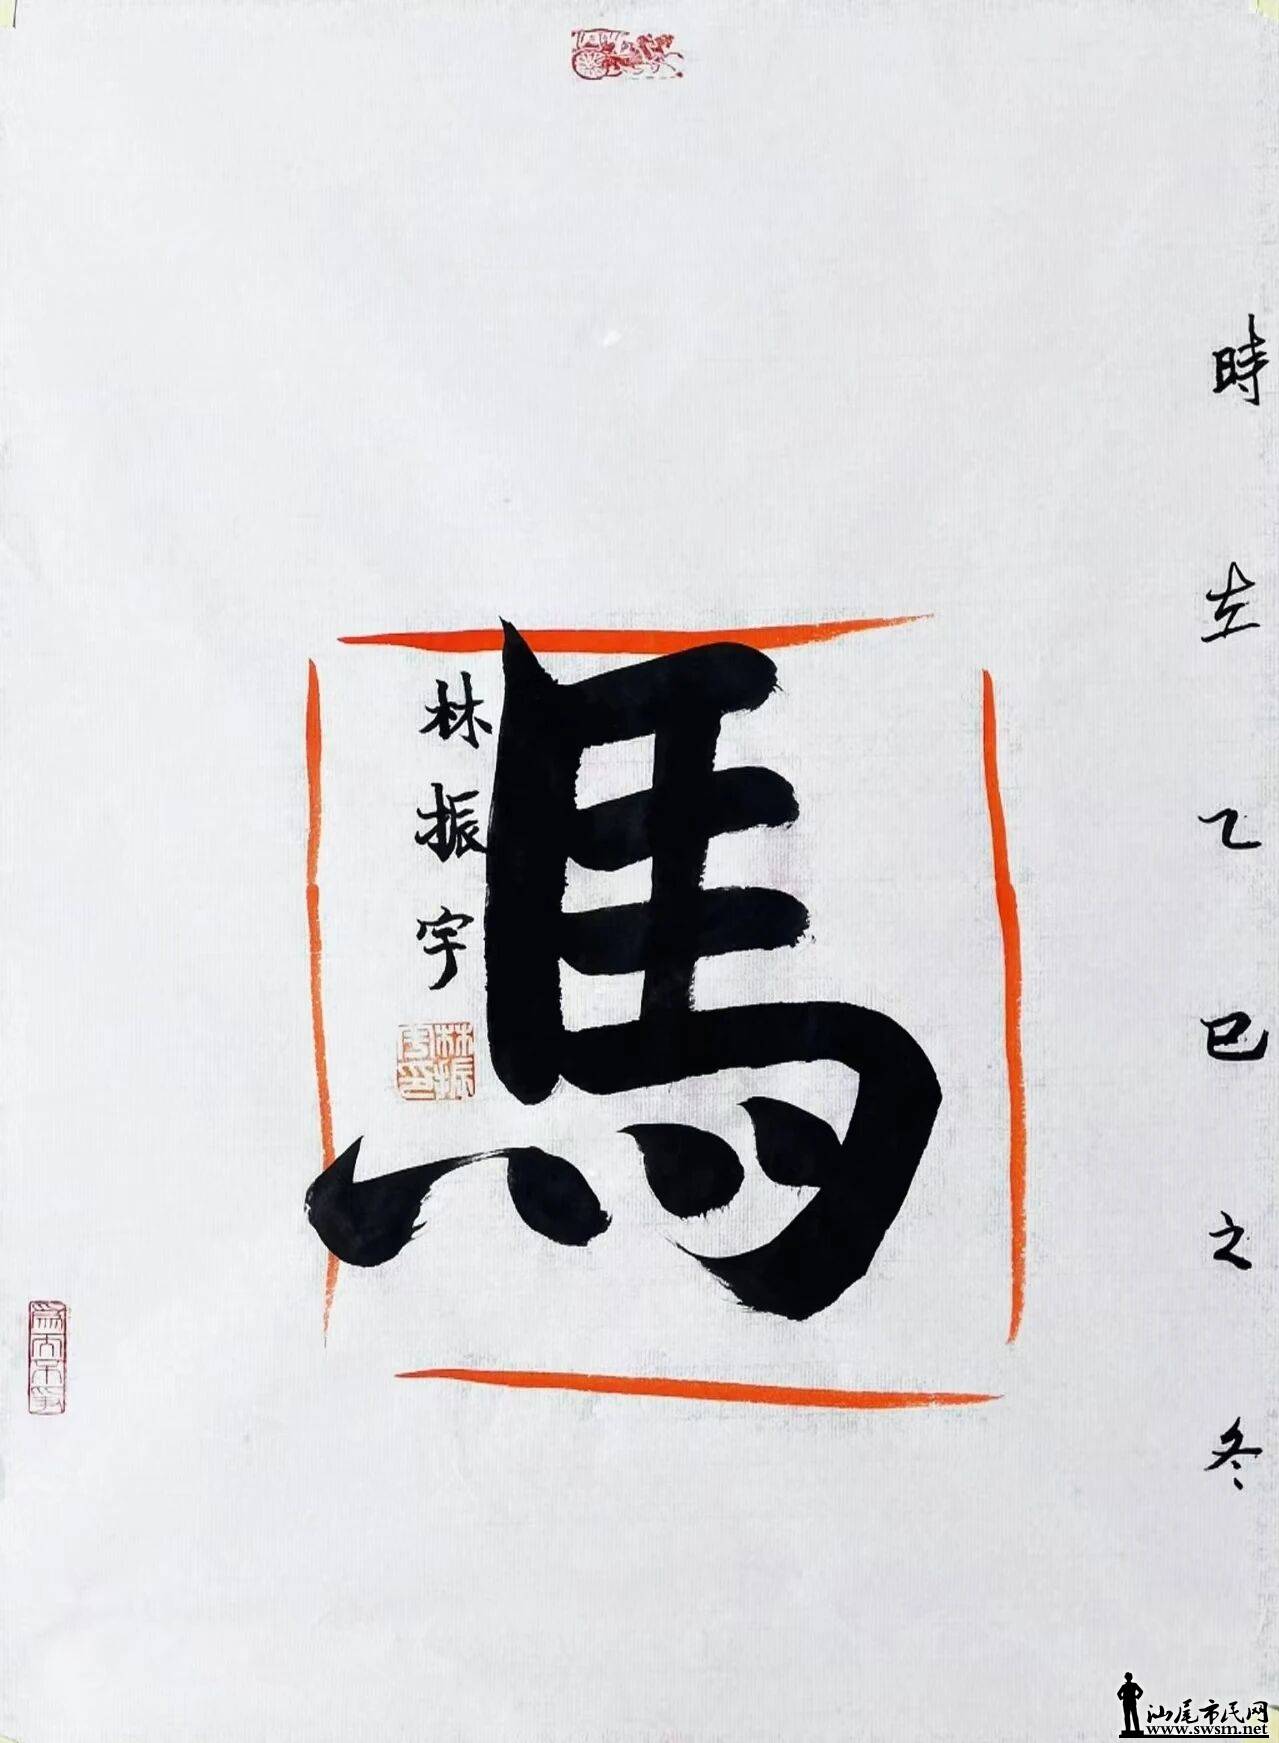 時在乙巳之冬
馬
林振宇
林振宇印
為而不爭
汕尾市民网
www.swsm.net